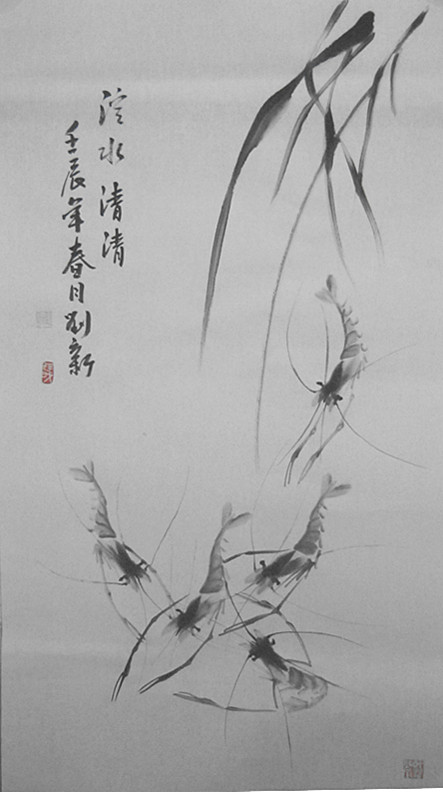 溪水清清
壬辰年春日刘新